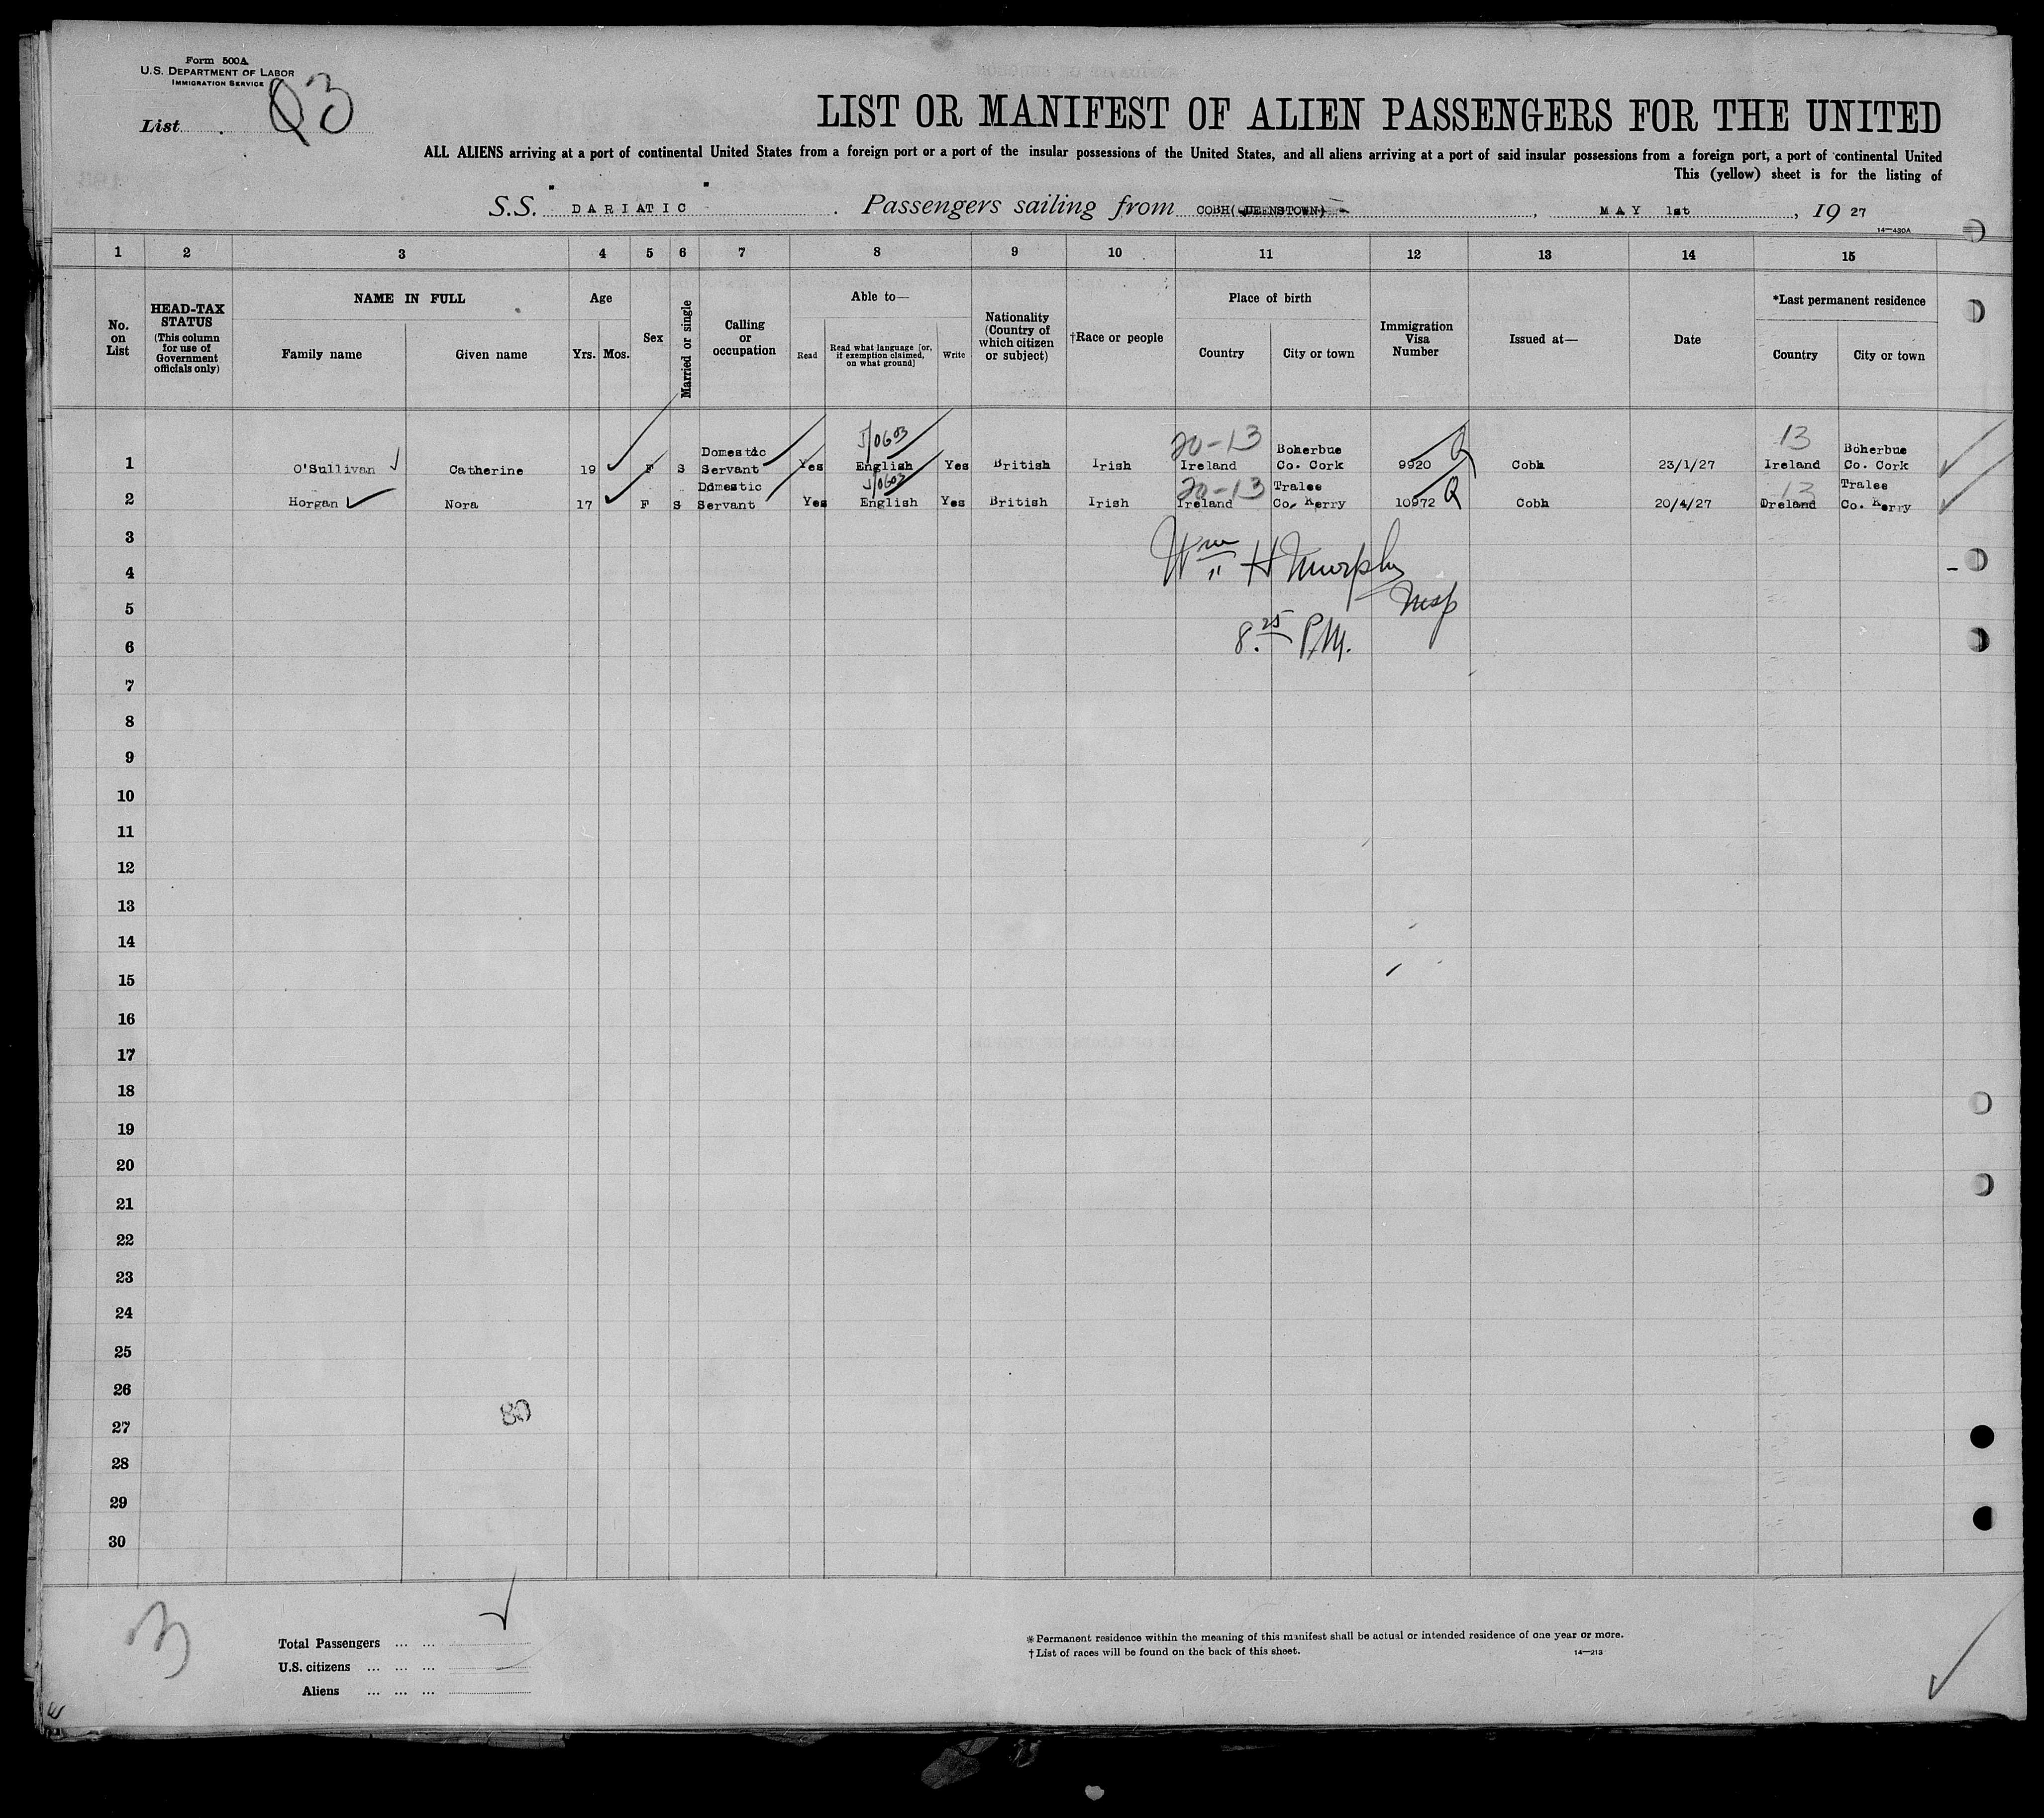 Form 500A
U.S. DEPARTMENT OF LABOR
IMMIGRATION SERVICE
List
LIST OR MANIFEST OF ALIEN PASSENGERS FOR THE UNITED
ALL ALIENS arriving at a port of continental United States from a foreign port or a port of the insular possessions of the United States, and all aliens arriving at a port of said insular possessions from a foreign port, a port of continental United
This (yellow) sheet is for the listing of
S.S. " DARIATIC " Passengers sailing from COBH(QUEENSTOWN) , MAY 1st , 19 27
14—430A
1 2 3 4 5 6 7 8 9 10 11 12 13 14 15
No. on List
HEAD-TAX STATUS (This column for use of Government officials only)
NAME IN FULL
Family name Given name
Age
Yrs. Mos.
Sex
Married or single
Calling or occupation
Able to—
Read
Read what language [or, if exemption claimed, on what ground]
Write
Nationality (Country of which citizen or subject)
†Race or people
Place of birth
Country City or town
Immigration Visa Number
Issued at—
Date
*Last permanent residence
Country City or town
20-13 13
1 O'Sullivan Catherine 19 F S Domestic Servant Yes English Yes British Irish Ireland Boherbue Co. Cork 9920 Q Cobh 23/1/27 Ireland Boherbue Co. Cork
20-13 13
2 Horgan Nora 17 F S Domestic Servant Yes English Yes British Irish Ireland Tralee Co. Kerry 10972 Q Cobh 20/4/27 Ireland Tralee Co. Kerry
3
Wm H Murphy
4
5
8.25 P.M.
6
7
8
9
10
11
12
13
14
15
16
17
18
19
20
21
22
23
24
25
26
80
27
28
29
30
3
Total Passengers ... ...
U.S. citizens ... ... ...
Aliens ... ... ...
* Permanent residence within the meaning of this manifest shall be actual or intended residence of one year or more.
† List of races will be found on the back of this sheet.
14—213